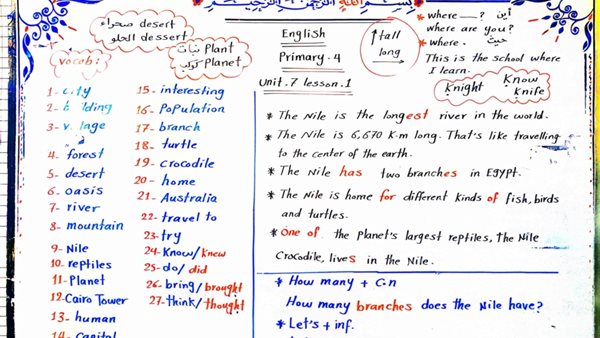 بسم الله الرحمن الرحيم
desert صحراء
dessert الحلو
نبات Plant
كوكب Planet
English
Primary. 4
Unit. 7 lesson. 1
tall
long
* where ___? أين
where are you?
* where. حيث
This is the school where
I learn.
Knight Know
Knife
vocab:
1- city
2- building
3- village
4- forest
5- desert
6- oasis
7- river
8- mountain
9- Nile
10- reptiles
11- Planet
12- Cairo Tower
13- human
14- capital
15- interesting
16- Population
17- branch
18- turtle
19- crocodile
20- home
21- Australia
22- travel to
23- try
24- Know/Knew
25- do/did
26- bring/brought
27- think/thought
* The Nile is the longest river in the world.
* The Nile is 6,670 Km long. That's like travelling
to the center of the earth.
* The Nile has two branches in Egypt.
* The Nile is home for different kinds of fish, birds
and turtles.
* One of the planet's largest reptiles, the Nile
Crocodile, lives in the Nile.
* How many + C.n
How many branches does the Nile have?
* Let's + inf.